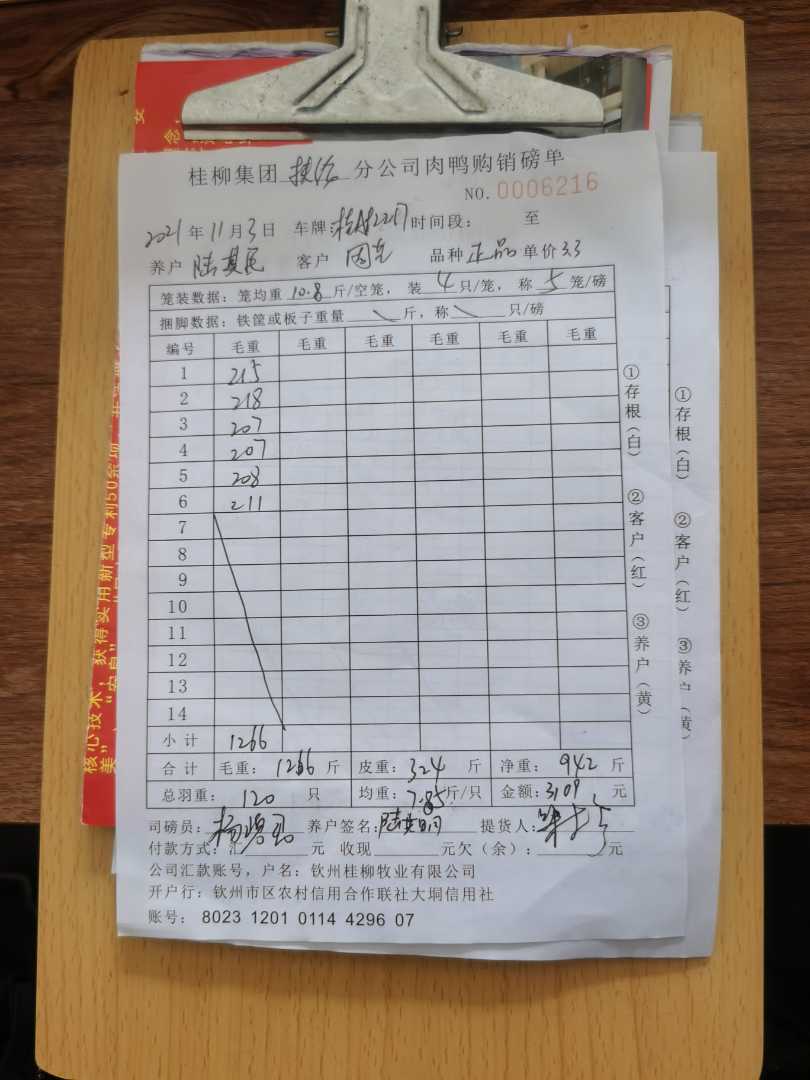 桂柳集团 扶绥 分公司肉鸭购销磅单
NO. 0006216
2021年11月3日 车牌 时间段: 至
养户 客户 品种 正品 单价 3.3
笼装数据:笼均重 10.8 斤/空笼,装 4 只/笼,称 5 笼/磅
捆脚数据:铁筐或板子重量 \ 斤,称 \ 只/磅
编号 毛重 毛重 毛重 毛重 毛重 毛重
1 215
2 218
3 207
4 207
5 208
6 211
7
8
9
10
11
12
13
14
小计 1266
合计 毛重: 1266 斤 皮重: 324 斤 净重: 942 斤
总羽重: 120 只 均重: 7.85 斤/只 金额: 3109 元
司磅员: 养户签名: 提货人:
付款方式:汇 元 收现 元欠(余): 元
公司汇款账号,户名:钦州桂柳牧业有限公司
开户行:钦州市区农村信用合作联社大垌信用社
账号: 8023 1201 0114 4296 07
①存根(白) ②客户(红) ③养户(黄)
①存根(白) ②客户(红) ③养户(黄)
核心技术,获得实用新型专利50余项
美”、“安息”